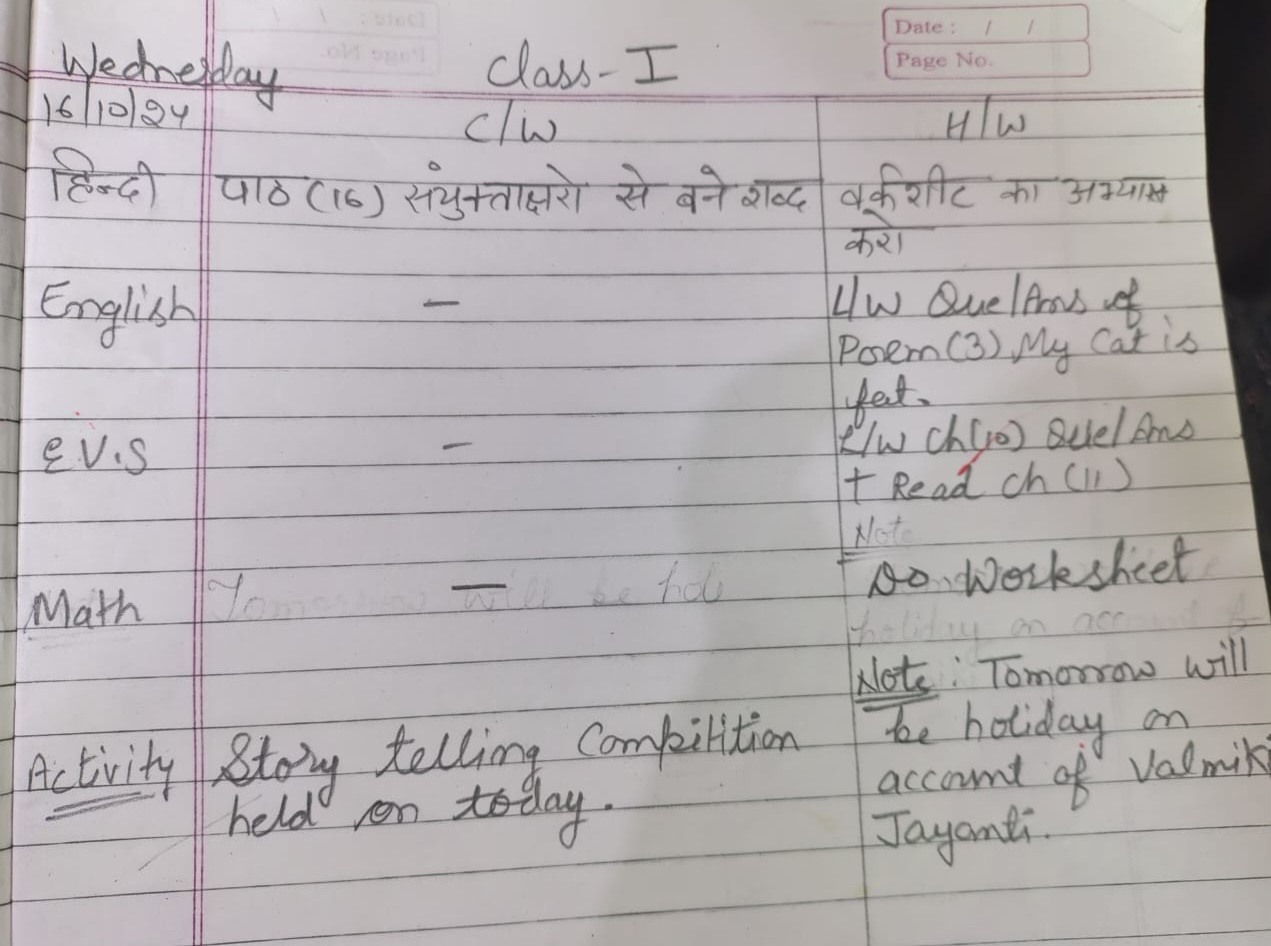 Date : / /
Page No.
Wednesday Class - I
16/10/24 C/W H/W
हिन्दी पाठ (16) संयुक्ताक्षरो से बने शब्द वर्कशीट का अभ्यास
करो
English — L/W Que/Ans of
Poem (3) My Cat is
fat.
E.V.S — L/W Ch (10) Que/Ans
+ Read Ch (11)
Note
Math — Do Worksheet
Tomorrow will be hol
holiday on account
Note : Tomorrow will
be holiday on
account of Valmiki
Jayanti.
Activity Story telling Compitition
held on today.